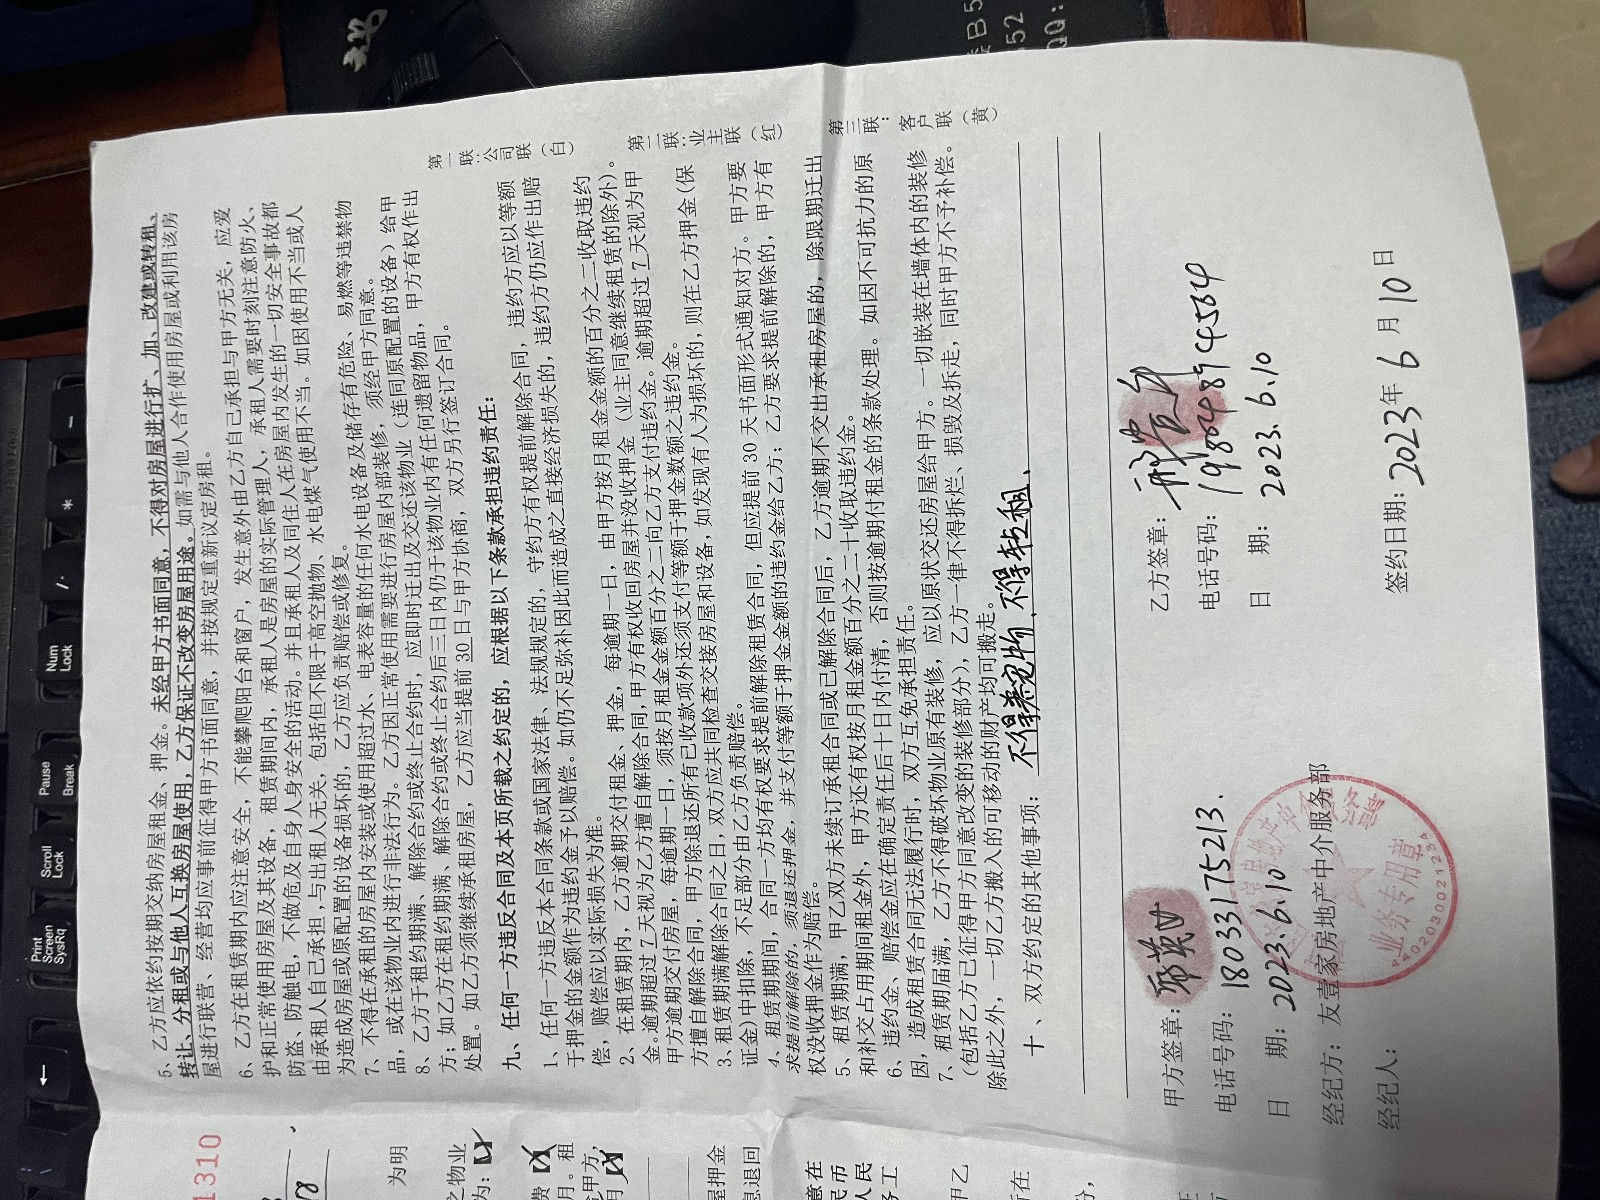 5、乙方应依约按期交纳房屋租金、押金。未经甲方书面同意，不得对房屋进行扩、加、改建或转租、
转让、分租或与他人互换房屋使用，乙方保证不改变房屋用途。如需与他人合作使用房屋或利用该房
屋进行联营、经营均应事前征得甲方书面同意，并按规定重新议定房租。
6、乙方在租赁期内应注意安全，不能攀爬阳台和窗户，发生意外由乙方自己承担与甲方无关，应爱
护和正常使用房屋及其设备，租赁期间内，承租人是房屋的实际管理人，承租人需要时刻注意防火、
防盗、防触电，不做危及自身人身安全的活动。并且承租人及同住人在房屋内发生的一切安全事故都
由承租人自己承担，与出租人无关，包括但不限于高空抛物、水电煤气使用不当。如因使用不当或人
为造成房屋或原配置的设备损坏的，乙方应负责赔偿或修复。
7、不得在承租的房屋内安装或使用超过水、电表容量的任何水电设备及储存有危险、易燃等违禁物
品，或在该物业内进行非法行为。乙方因正常使用需要进行房屋内部装修，须经甲方同意。
8、乙方于租约期满、解除合约或终止合约时，应即时迁出及交还该物业（连同原配置的设备）给甲
方；如乙方在租约期满、解除合约或终止合约后三日内仍于该物业内有任何遗留物品，甲方有权作出
处置。如乙方须继续承租房屋，乙方应当提前30日与甲方协商，双方另行签订合同。
九、任何一方违反合同及本页所载之约定的，应根据以下条款承担违约责任：
1、任何一方违反本合同条款或国家法律、法规规定的，守约方有权提前解除合同，违约方应以等额
于押金的金额作为违约金予以赔偿。如仍不足弥补因此而造成之直接经济损失的，违约方仍应作出赔
偿，赔偿应以实际损失为准。
2、在租赁期内，乙方逾期交付租金、押金，每逾期一日，由甲方按月租金金额的百分之二收取违约
金。逾期超过7天视为乙方擅自解除合同，甲方有权收回房屋并没收押金（业主同意继续租赁的除外）。
甲方逾期交付房屋，每逾期一日，须按月租金金额百分之二向乙方支付违约金。逾期超过7天视为甲
方擅自解除合同，甲方除退还所有已收款项外还须支付等额于押金数额之违约金。
3、租赁期满解除合同之日，双方应共同检查交接房屋和设备，如发现有人为损坏的，则在乙方押金(保
证金)中扣除，不足部分由乙方负责赔偿。
4、租赁期间，合同一方均有权要求提前解除租赁合同，但应提前30天书面形式通知对方。甲方要
求提前解除的，须退还押金，并支付等额于押金金额的违约金给乙方；乙方要求提前解除的，甲方有
权没收押金作为赔偿。
5、租赁期满，甲乙双方未续订承租合同或已解除合同后，乙方逾期不交出承租房屋的，除限期迁出
和补交占用期间租金外，甲方还有权按月租金额百分之二十收取违约金。
6、违约金、赔偿金应在确定责任后十日内付清，否则按逾期付租金的条款处理。如因不可抗力的原
因，造成租赁合同无法履行时，双方互免承担责任。
7、租赁期届满，乙方不得破坏物业原有装修，应以原状交还房屋给甲方。一切嵌装在墙体内的装修
(包括乙方已征得甲方同意改变的装修部分)，乙方一律不得拆烂、损毁及拆走，同时甲方不予补偿。
除此之外，一切乙方搬入的可移动的财产均可搬走。
十、双方约定的其他事项：不得养宠物、不得转租、
第一联：公司联（白）
第二联：业主联（红）
第三联：客户联（黄）
甲方签章：
电话号码：18033175213.
日 期：2023.6.10
经纪方：友壹家房地产中介服务部
经纪人：
业务专用章
乙方签章：
电话号码：19804894534
日 期：2023.6.10
签约日期：2023年6月10日
1310
为明
之物业
为：
费
月。租
甲方,
屋押金
息退回
意在
民币
人民
务工
甲乙
所在
Print
Screen
SysRq
Scroll
Lock
Pause
Break
Num
Lock
/
*
B5
52
QQ: